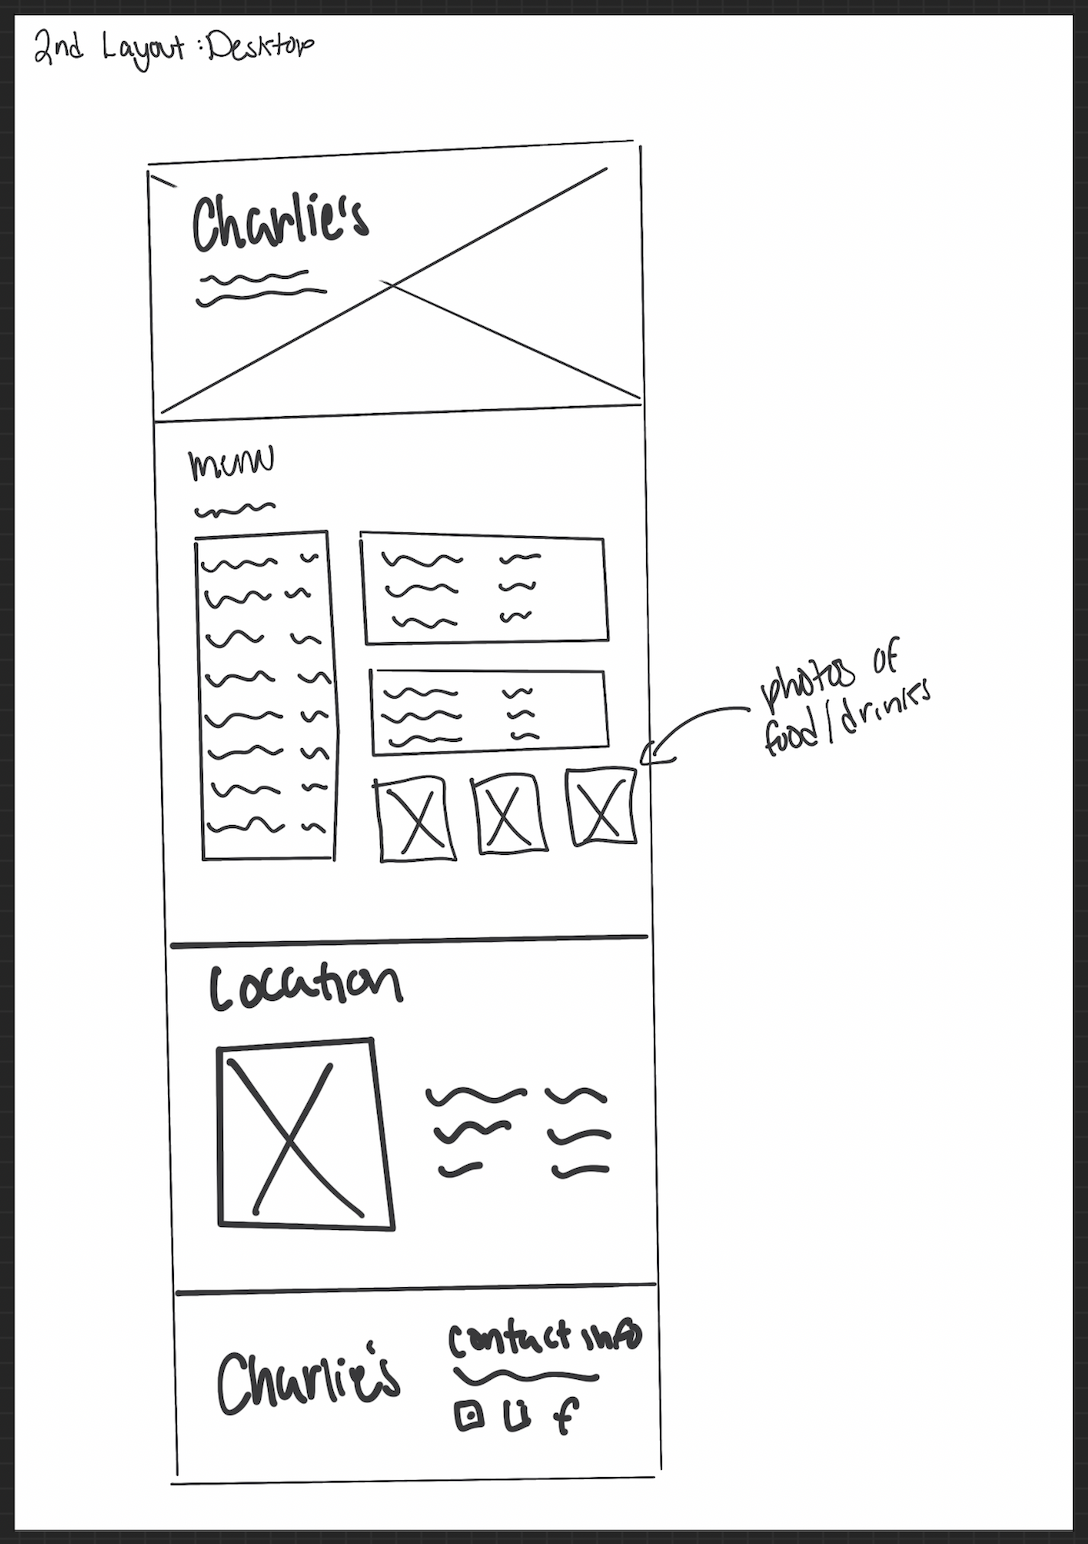 2nd Layout: Desktop
Charlie's
menu
photos of
food/drinks
Location
Charlie's
contact info
f